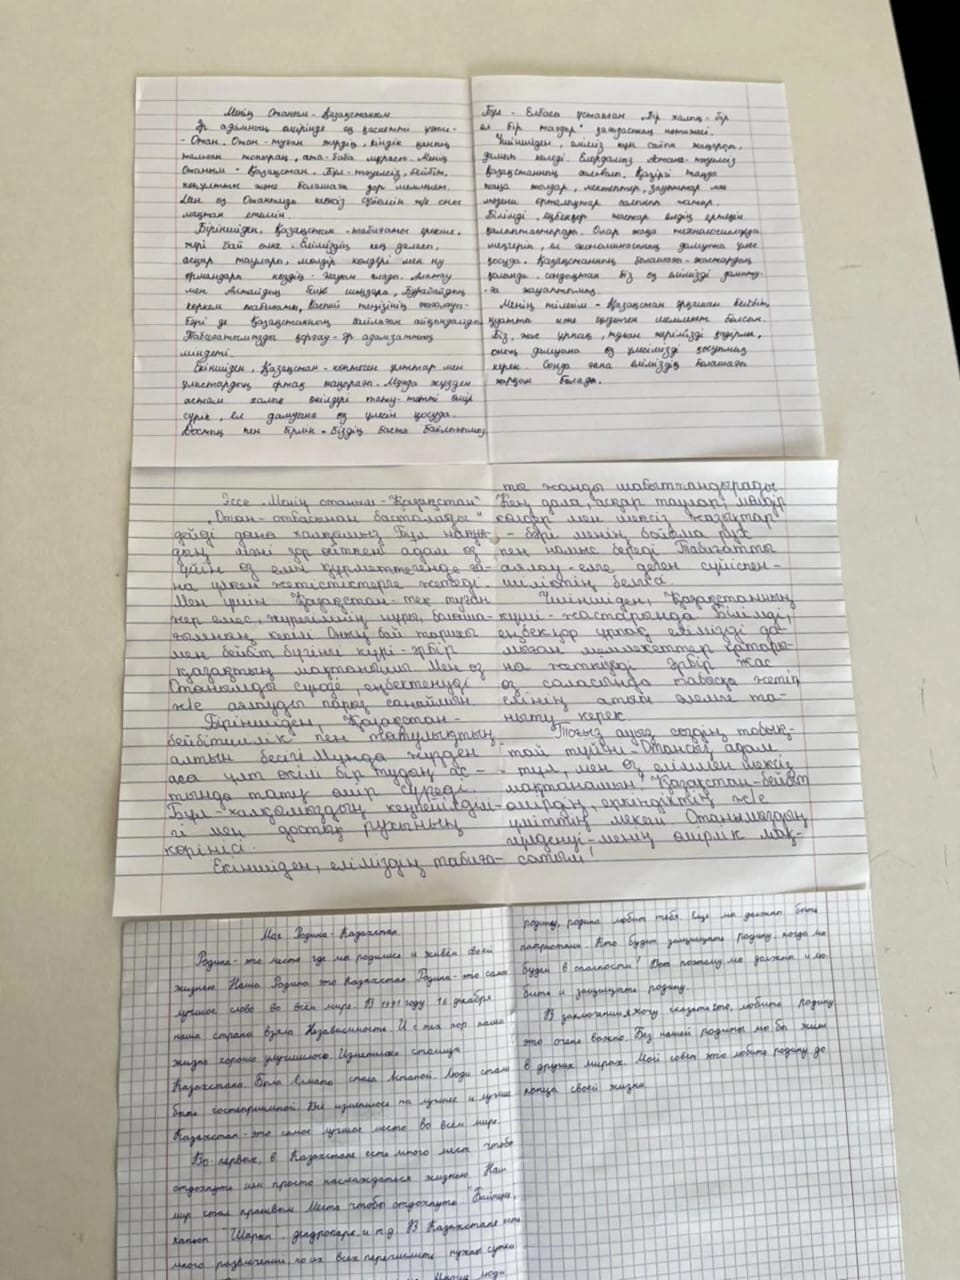 Менің Отаным - Қазақстаным
Әр адамның өмірінде ең қасиетті ұғым -
- Отан. Отан - туған жердің, кіндік қанның
тамған топырақ, ата-баба мұрасы. Менің
Отаным - Қазақстан. Бұл - тәуелсіз, бейбіт,
көпұлтты және болашағы зор мемлекет.
Мен өз Отанымды шексіз сүйемін әрі оны
мақтан етемін.
Біріншіден, Қазақстан - табиғаты ерекше,
жері бай өлке. Еліміздің кең даласы,
асқар таулары, мөлдір көлдері мен ну
ормандары көздің жауын алады. Алатау
мен Алтайдың биік шыңдары, Бурабайдың
көркем табиғаты, Каспий теңізінің жағалауы -
бәрі де Қазақстанның байлығын айқындайды
Табиғатымызды қорғау - әр адамзаттың
міндеті.
Екіншіден, Қазақстан - көптеген ұлттар мен
ұлыстардың ортақ шаңырағы. Мұнда жүзден
астам халық өкілдері тату-тәтті өмір
сүріп, ел дамуына өз үлесін қосуда.
Достық пен бірлік - біздің басты байлығымыз
Бұл - Елбасы ұстанған „Бір халық - бір
ел бір тағдыр" қағидасының нәтижесі.
Үшіншіден, еліміз күн сайын жаңарып,
дамып келеді. Елордамыз Астана - тәуелсіз
Қазақстанның символы. Қазіргі таңда
жаңа жолдар, мектептер, зауыттар мен
мәдени орталықтар салынып жатыр.
Білімді, еңбекқор жастар елдің ертеңін
қалыптастырады. Олар жаңа технологияларды
меңгеріп, ел экономикасының дамуына үлес
қосуда. Қазақстанның болашағы - жастардың
қолында, сондықтан біз өз елімізді дамыту-
ға жауаптымыз.
Менің тілегім - Қазақстан әрқашан бейбіт,
қуатты және гүлденген мемлекет болсын.
Біз, жас ұрпақ, туған жерімізді қадірлеп,
оның дамуына өз үлесімізді қосуымыз
керек. Сонда ғана еліміздің болашағы
жарқын болады.
Эссе „Менің отаным - Қазақстан"
„Отан - отбасынан басталады"
дейді дана халқымыз Бұл нақыл-
дың мәні зор өйткені адам өз
үйін өз елін құрметтегенде ға-
на үлкен жетістіктерге жетеді.
Мен үшін Қазақстан - тек туған
жер емес, жүрегімнің нұры, болаша-
ғымның кепілі Оның бай тарихы
мен бейбіт бүгінгі күні - әрбір
қазақтың мақтанышы Мен өз
Отанымды сүюді, еңбектенуді
ж/е аялауды парыз санаймын
Біріншіден, Қазақстан -
бейбітшілік пен татулықтың
алтын бесігі Мұнда жүзден
аса ұлт өкілі бір тудың ас-
тында тату өмір сүреді.
Бұл - халқымыздың кеңпейілділі-
гі мен достық рухының
көрінісі.
Екіншіден, еліміздің табиға-
ты жанды шабыттандырады
Кең дала, асқар таулар, мөлдір
көлдер мен шексіз жазықтар
- бәрі менің бойыма рух
пен намыс береді Табиғатты
аялау - елге деген сүйіспен-
шіліктің белгісі.
Үшіншіден, Қазақстанның
күші - жастарында Білімді,
еңбекқор ұрпақ елімізді да-
мыған мемлекеттер қатары-
на жеткізеді Әрбір жас
өз саласында табысқа жетіп
елінің атын әлемге та-
ныту керек.
Тоғыз ауыз сөздің тобық-
тай түйіні - Отансыз адам
- тұл, мен өз еліммен шексіз
мақтанамын! Қазақстан - бейбіт
өмірдің, еркіндіктің ж/е
үміттің мекені Отанымыздың
гүлденуі - менің өмірлік мақ-
сатым!
Моя Родина - Казахстан.
Родина - это место где мы родились и живём своей
жизнью. Наша Родина это Казахстан Родина - это самое
лучшое слово во всём мире. В 1991 году 16 декабря
наша страна взяла Независимость. И с тех пор наша
жизнь хорошо улучшилось. Изменилась столица
Казахстана. Была Алматы стала Астаной. Люди стали
быть гостеприимной. Всё изменилось на лучшее и лучше
Казахстан - это самое лучшое место во всём мире.
Во-первых, в Казахстане есть много мест чтобы
отдохнуть или просто наслаждаться жизнью. Наш
мир стал красивым. Места чтобы отдохнуть "Байтерек,
каньон "Шарын", дендропарк, и т.д. В Казахстане есть
много развлечений, но их всех перечислить нужны сутки
люди
родину, родина любит тебя. Ещё мы должны быть
патриотами. Кто будет защищать родину, когда мы
будем в опасности? Вот поэтому мы должны лю-
бить и защищать родину.
В заключении я хочу сказать что, любить родину
это очень важно. Без нашей родины мы бы жили
в других мирах. Мой совет это любить родину до
конца своей жизни.